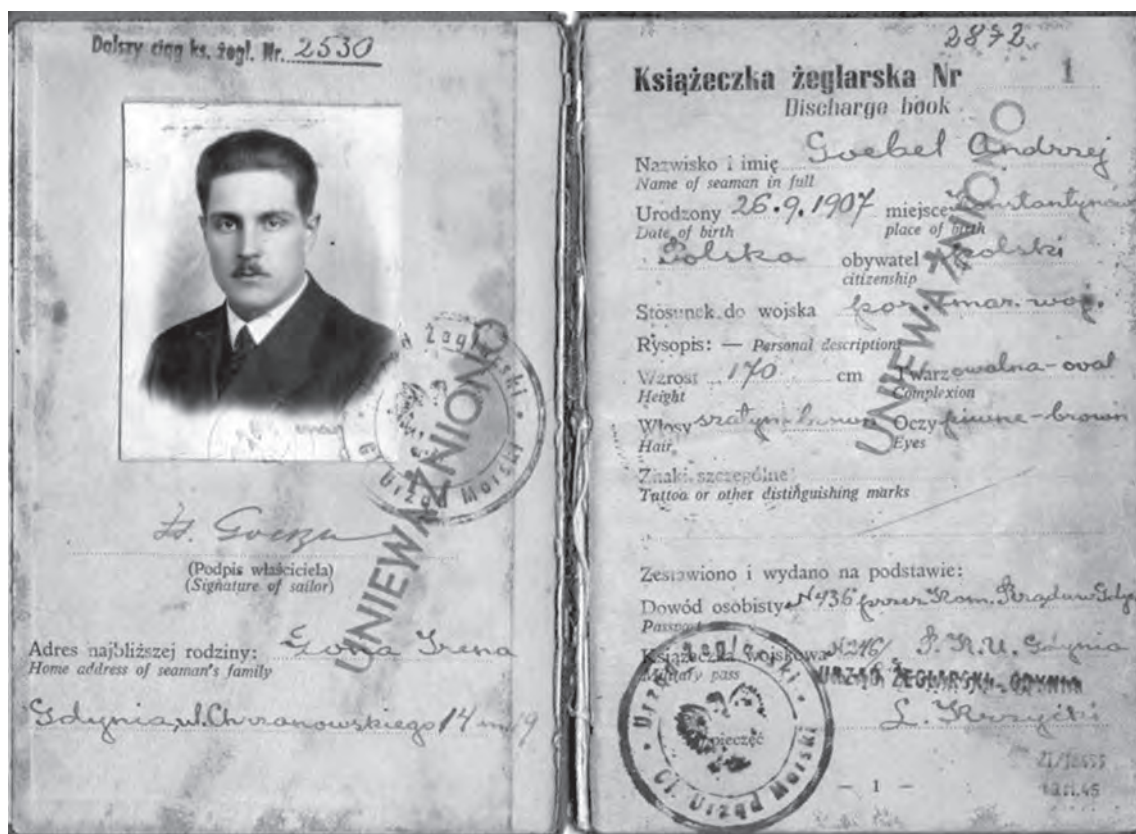 Dalszy ciąg ks. żegl. Nr. 2530
UNIEWAŻNIONO
Urząd Morski
(Podpis właściciela)
(Signature of sailor)
Adres najbliższej rodziny: Żona Irena
Home address of seaman's family
Gdynia, ul. Chrzanowskiego 14 m 19
2872
Książeczka żeglarska Nr 1
Discharge book
Nazwisko i imię Goebel Andrzej
Name of seaman in full
Urodzony 26.9.1907 miejsce Konstantynów
Date of birth place of birth
Polska obywatel polski
citizenship
Stosunek do wojska por. mar. woj.
Rysopis: — Personal description:
Wzrost 170 cm Twarz owalna - oval
Height Complexion
Włosy Oczy piwne - brown
Hair Eyes
Znaki szczególne
Tattoo or other distinguishing marks
UNIEWAŻNIONO
Zestawiono i wydano na podstawie:
Dowód osobisty N 436 przez Kom. Rządu w Gdyni
Passport
Książeczka wojskowa N 216/ P.K.U. Gdynia
Military pass
URZĄD ŻEGLARSKI - GDYNIA
pieczęć
Urząd Żeglarski
Gł. Urząd Morski
— 1 —